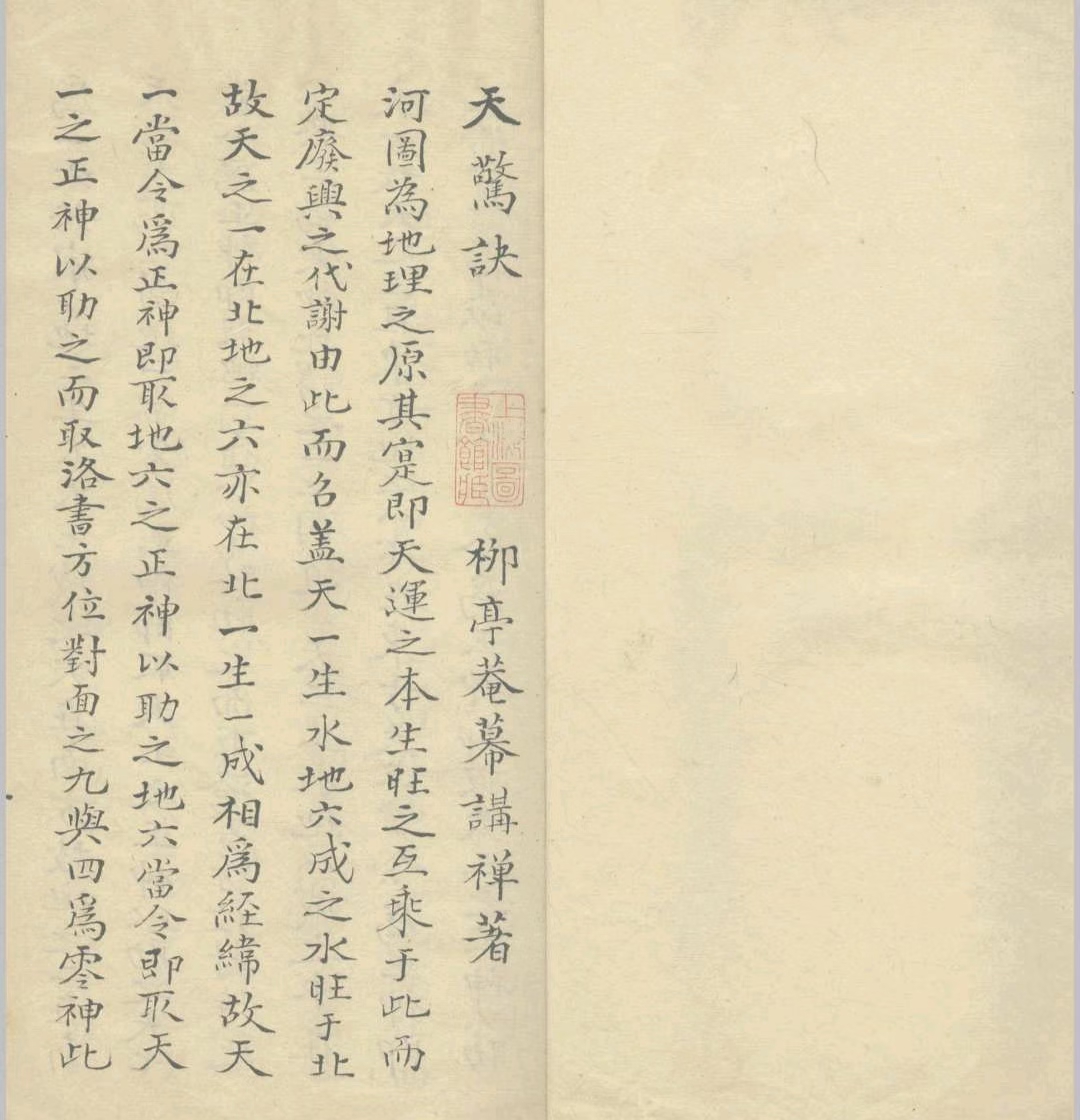 天驚訣 柳亭菴幕講禅著
上海圖書館藏
河圖為地理之原其寔即天運之本生旺之互乘于此而
定廢興之代謝由此而召盖天一生水地六成之水旺于北
故天之一在北地之六亦在北一生一成相爲経緯故天
一當令爲正神即取地六之正神以助之地六當令即取天
一之正神以助之而取洛書方位對面之九與四爲零神此